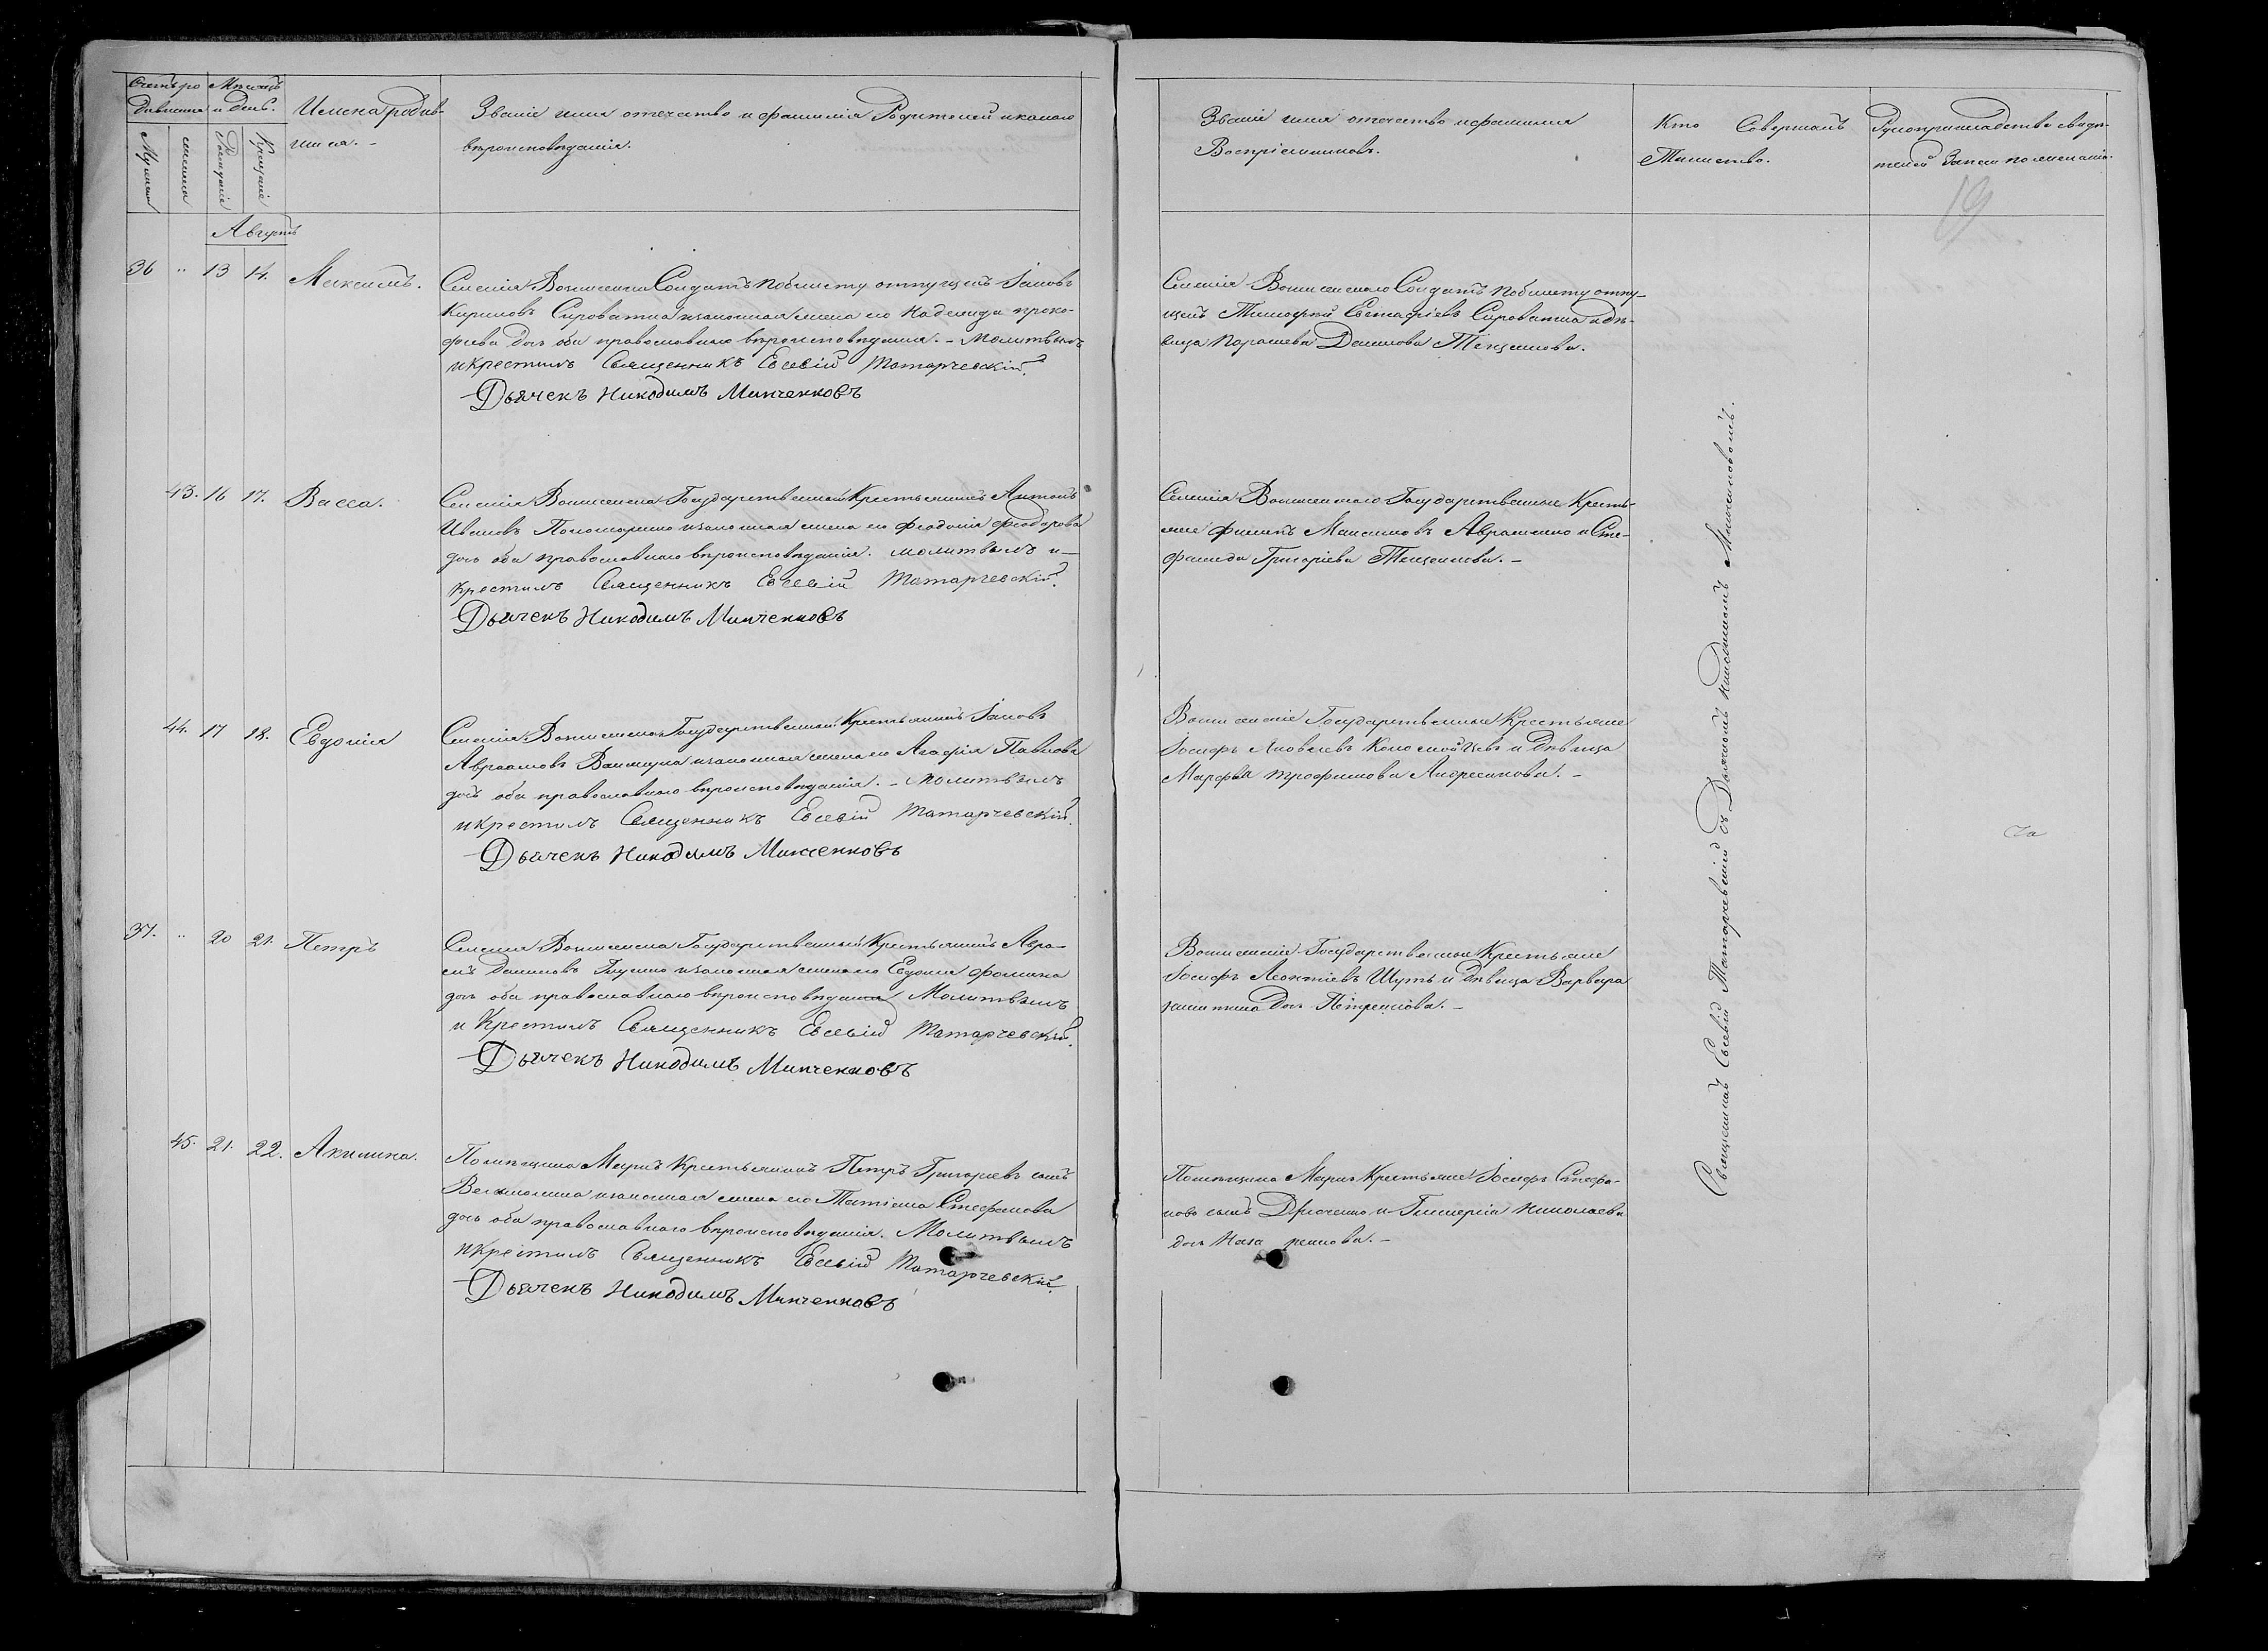 Счетъ ро
дившихся
Мѣсяцъ
и день.
Мужеска
женска
Рожденіе
Крещеніе
Имена родив-
шихся. -
Званіе имя отечество и фамилія Родителей и какого
вѣроисповѣданія.
Званіе имя отечество и фамилія
Воспріемниковъ.
Кто Совершалъ
Таинство.
Рукоприкладство свидѣ-
телей записи по желанію.
19
Августъ
36 " 13 14. Максимъ.
Селенія Солдатъ по билету отпущенъ Іаковъ
Кириловъ Сироватка и законная жена его Надежда Проко-
фиева дочь оба православнаго вѣроисповѣданія. - Молитвилъ
и крестилъ Священникъ Евсевій Татарчевскій.
Дьячекъ Никодимъ Минченковъ
Селенія Солдатъ по билету отпу-
щенъ Тимофей Евстафіевъ Сироватка и дѣ-
вица Параскева Данилова
43. 16 17. Васса.
Селенія Государственный Крестьянинъ Антонъ
Ивановъ Пономаренко и законная жена его Феодосія Феодорова
дочь оба православнаго вѣроисповѣданія. молитвилъ и
крестилъ Священникъ Евсевій Татарчевскій.
Дьячекъ Никодимъ Минченковъ
Селенія Государственные Кресть-
яне Филипъ Максимовъ Авраменко и Сте-
фанида Григоріева
44. 17 18. Евдокія
Селенія Государственный Крестьянинъ Іаковъ
Авраамовъ и законная жена его Агафія Павлова
дочь оба православнаго вѣроисповѣданія. - Молитвилъ
и крестилъ Священникъ Евсевій Татарчевскій.
Дьячекъ Никодимъ Минченковъ
Государственные Крестьяне
Іосифъ Яковлевъ Коломойцевъ и Дѣвица
Марфа Трофимова Андреенкова. -
37. " 20 21. Петръ
Селенія Государственный Крестьянинъ
Даниловъ и законная жена его Евдокія Фомина
дочь оба православнаго вѣроисповѣданія Молитвилъ
и Крестилъ Священникъ Евсевій Татарчевскій.
Дьячекъ Никодимъ Минченковъ
Государственные Крестьяне
Іосифъ Леонтіевъ Шуть и дѣвица Варвара
дочь Петренкова. -
45. 21. 22. Акилина.
Помѣщика Крестьянинъ Петръ Григориевъ сынъ
и законная жена его Татіана Стефанова
дочь оба православнаго вѣроисповѣданія. Молитвилъ
и крестилъ Священникъ Евсевій Татарчевскій.
Дьячекъ Никодимъ Минченковъ
Помѣщика Крестьяне Іосифъ Стефа-
новъ сынъ и Гликерія Николаева
дочь
Священникъ Евсевій Татарчевскій съ Дьячкомъ Никодимомъ Минченковымъ.